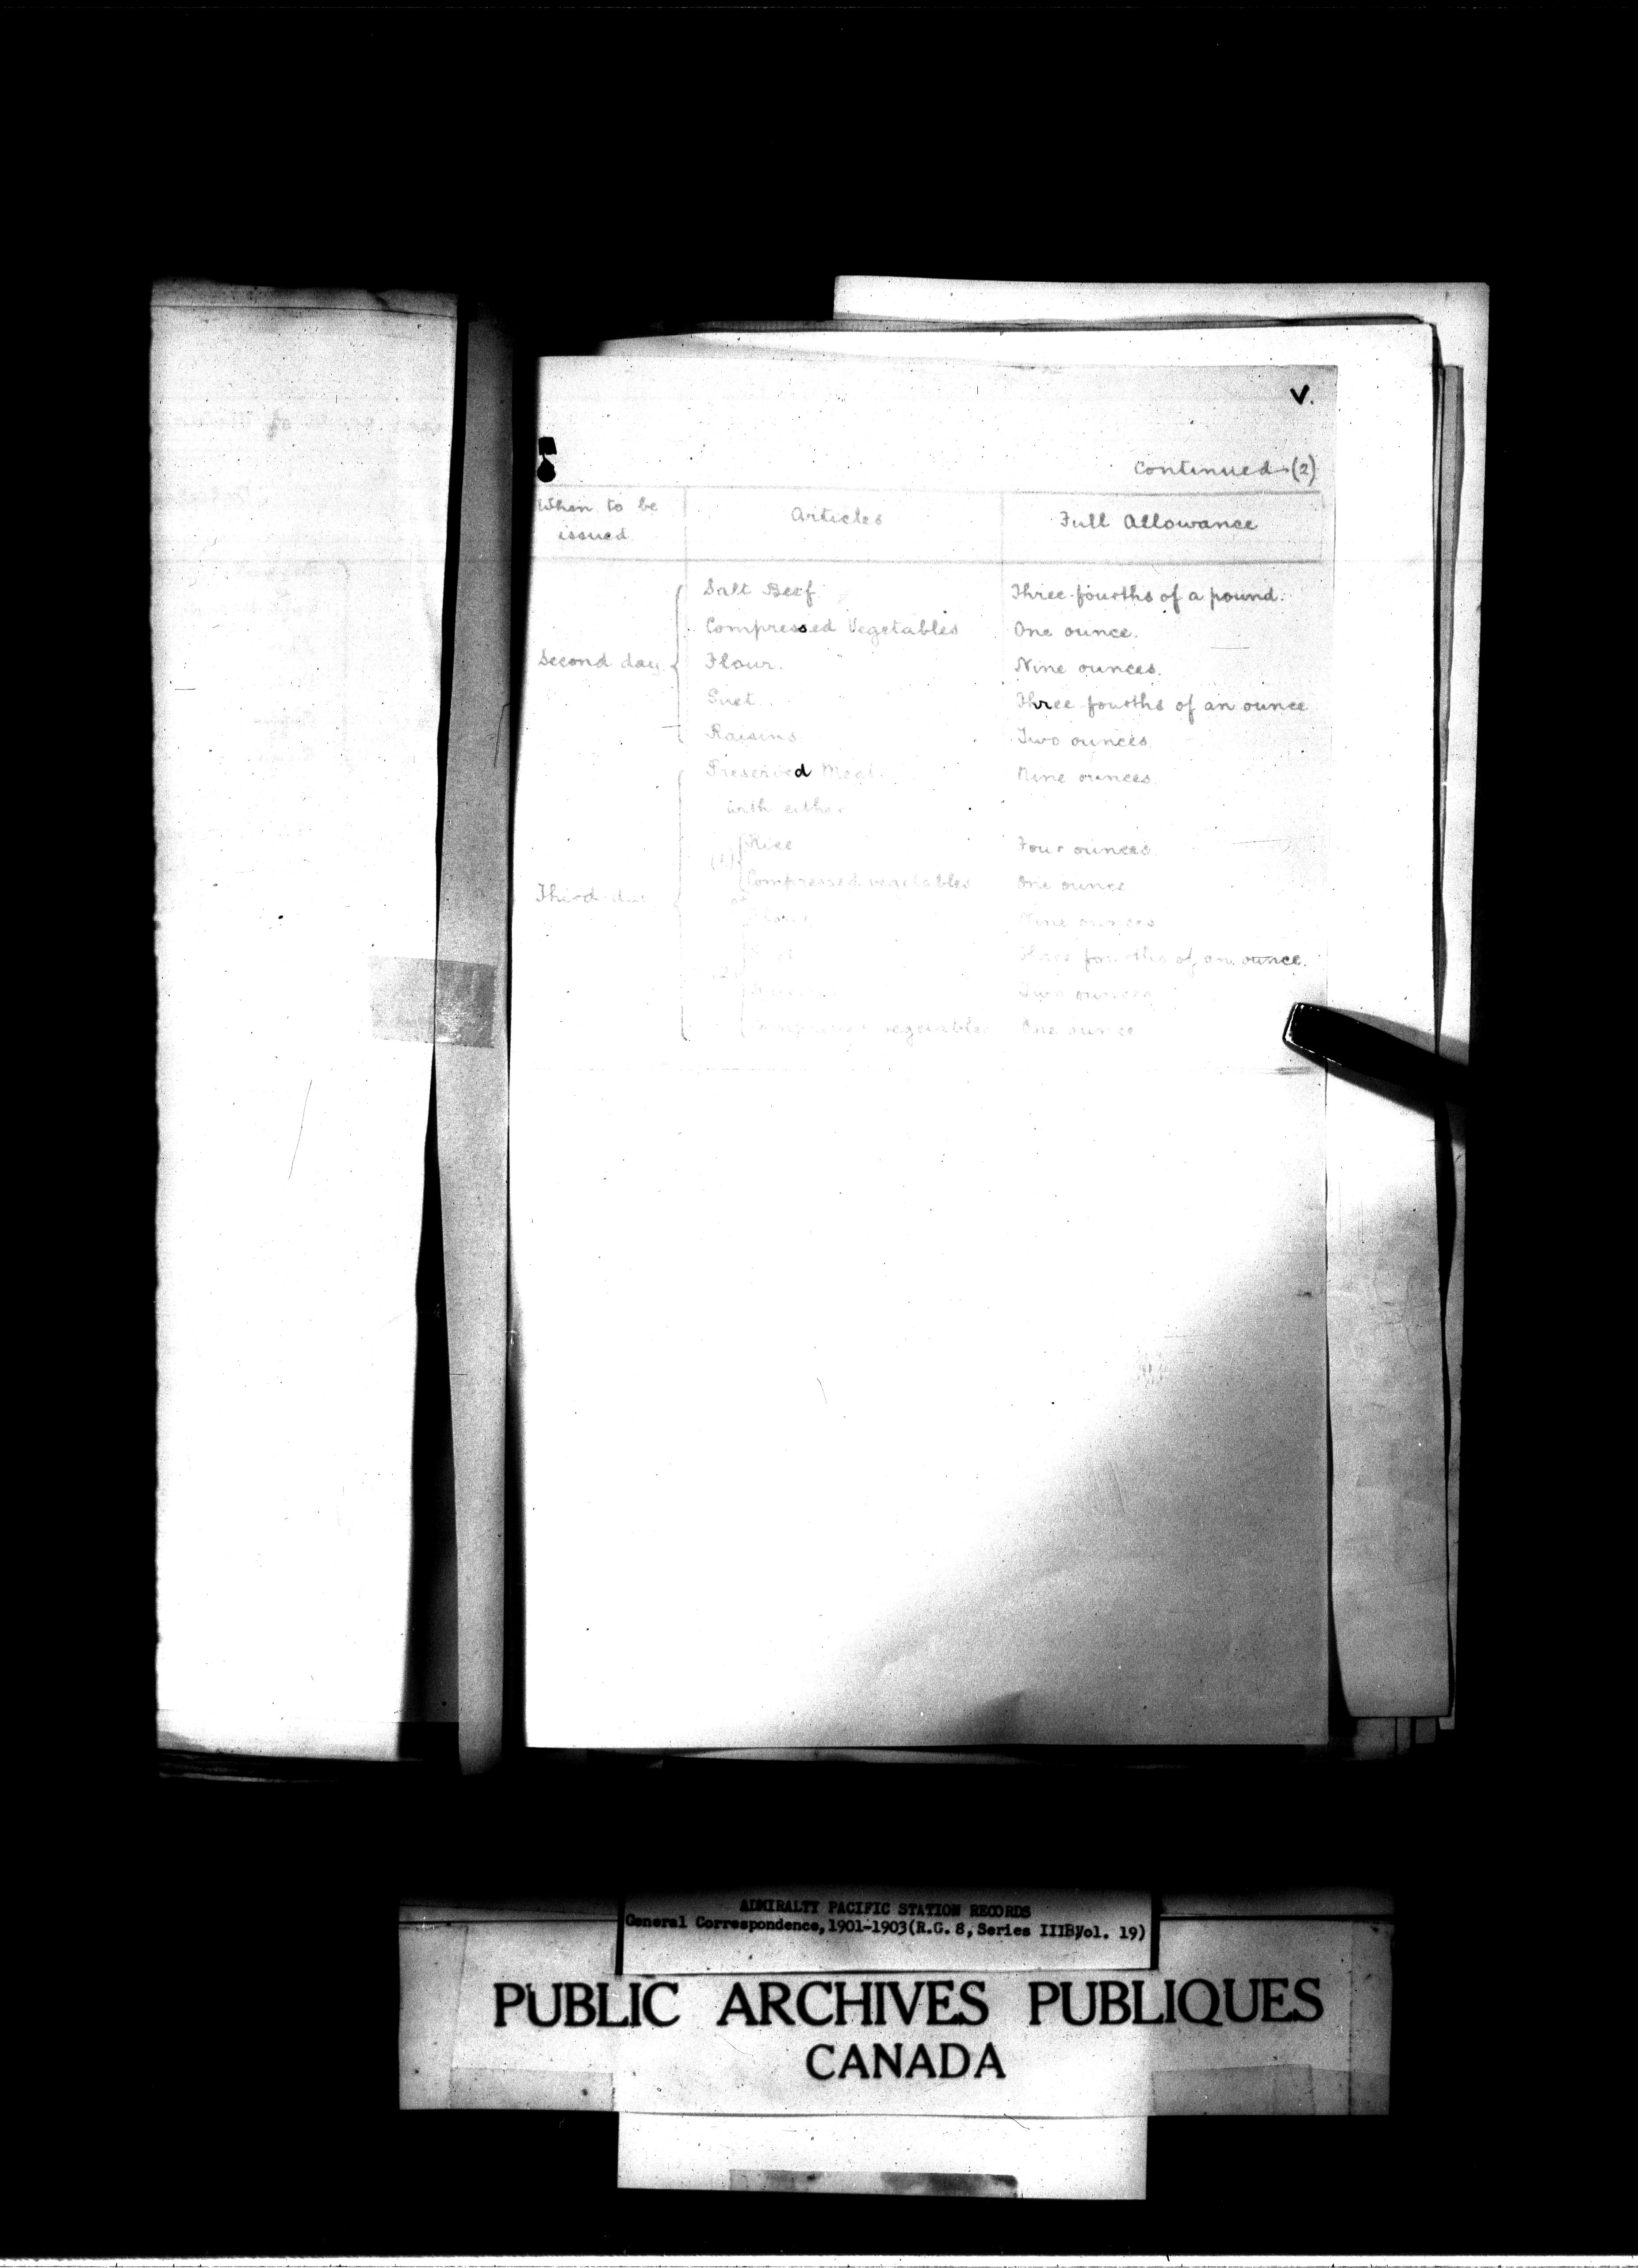 V.
Continued (2)
When to be issued
Articles
Full Allowance
Second day
Salt Beef Three-fourths of a pound.
Compressed Vegetables One ounce.
Flour. Nine ounces.
Suet Three fourths of an ounce
Raisins Two ounces.
Third day
Preserved Meat. Nine ounces.
with either
(1) Rice Four ounces.
Compressed vegetables One ounce
or
Flour Nine ounces
(2) Suet Three fourths of an ounce.
Two ounces
Compressed vegetables One ounce
ADMIRALTY PACIFIC STATION RECORDS
General Correspondence, 1901-1903 (R.G. 8, Series IIIB, Vol. 19)
PUBLIC ARCHIVES PUBLIQUES
CANADA